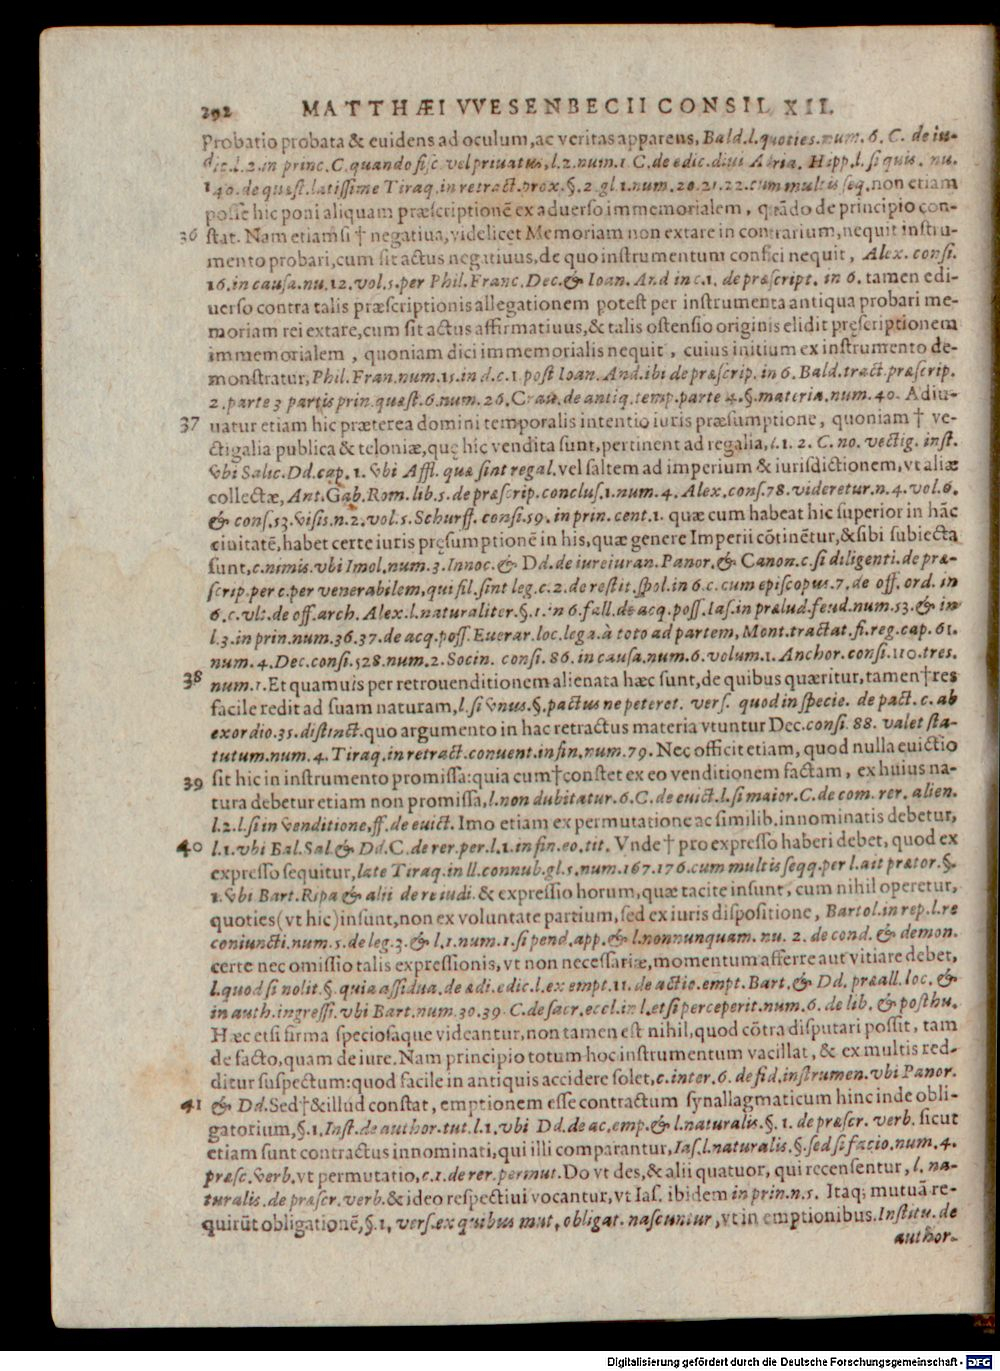 392 MATTHÆI VVESENBECII CONSIL XII.
Probatio probata & euidens ad oculum, ac veritas apparens, Bald. l. quoties. num. 6. C. de iu-
dic. l. 2. in princ. C. quando fisc. vel priuatus, l. 2. num. 1 C. de edic. diui Adria. Hipp. l. si quis. nu.
140. de quæst. latissime Tiraq. in retract. prox. §. 2. gl. 1. num. 20. 21. 22. cum multis seq. non etiam
posse hic poni aliquam præscriptionē ex aduerso immemorialem, quādo de principio con-
36 stat. Nam etiamsi † negatiua, videlicet Memoriam non extare in contrarium, nequit instru-
mento probari, cum sit actus negatiuus, de quo instrumentum confici nequit, Alex. consi.
16. in causa. nu. 12. vol. 5. per Phil. Franc. Dec. & Ioan. And in c. 1. de præscript. in 6. tamen edi-
uerso contra talis præscriptionis allegationem potest per instrumenta antiqua probari me-
moriam rei extare, cum sit actus affirmatiuus, & talis ostensio originis elidit pręscriptionem
immemorialem, quoniam dici immemorialis nequit, cuius initium ex instrumento de-
monstratur, Phil. Fran. num. 15. in d. c. 1. post Ioan. And. ibi de præscrip. in 6. Bald. tract. præscrip.
2. parte 3 partis prin. quæst. 6. num. 26. Crau. de antiq. temp. parte 4. §. materia. num. 40. Adiu-
37 uatur etiam hic præterea domini temporalis intentio iuris præsumptione, quoniam † ve-
ctigalia publica & teloniæ, quę hic vendita sunt, pertinent ad regalia, l. 1. 2. C. no. vectig. inst.
vbi Salic. Dd. cap. 1. vbi Affl. quæ siat regal. vel saltem ad imperium & iurisdictionem, vt aliæ
collectæ, Ant. Gab. Rom. lib. 5. de præscrip. conclus. 1. num. 4. Alex. cons. 78. videretur. n. 4. vol. 6.
& cons. 53. visis. n. 2. vol. 5. Schurff. consi. 59. in prin. cent. 1. quæ cum habeat hic superior in hāc
ciuitatē, habet certe iuris pręsumptionē in his, quæ genere Imperii cōtinētur, & sibi subiecta
sunt, c. nimis. vbi Imol. num. 3. Innoc. & Dd. de iureiuran. Panor. & Canon. c. si diligenti. de præ-
scrip. per c. per venerabilem, qui fil. sint leg. c. 2. de restit. spol. in 6. c. cum episcopus. 7. de off. ord. in
6. c. vlt. de off. arch. Alex. l. naturaliter. §. 1. in 6. fall. de acq. poss. Ias. in prælud. feud. num. 53. & in
l. 3. in prin. num. 36. 37. de acq. poss. Euerar. loc. lega. à toto ad partem, Mont. tractat. fi. reg. cap. 61.
num. 4. Dec. consi. 528. num. 2. Socin. consi. 86. in causa. num. 6. volum. 1. Anchor. consi. 110. tres.
38 num. 1. Et quamuis per retrouenditionem alienata hæc sunt, de quibus quæritur, tamen † res
facile redit ad suam naturam, l. si vnus. §. pactus ne peteret. vers. quod in specie. de pact. c. ab
exordio. 35. distinct. quo argumento in hac retractus materia vtuntur Dec. consi. 88. valet sta-
tutum. num. 4. Tiraq. in retract. conuent. in fin. num. 79. Nec officit etiam, quod nulla euictio
39 sit hic in instrumento promissa: quia cum † constet ex eo venditionem factam, ex huius na-
tura debetur etiam non promissa, l. non dubitatur. 6. C. de euict. l. si maior. C. de com. rer. alien.
l. 2. l. si in venditione, ff. de euict. Imo etiam ex permutatione ac similib. innominatis debetur,
40 l. 1. vbi Bal. Sal. & Dd. C. de rer. per. l. 1. in fin. eo. tit. Vnde † pro expresso haberi debet, quod ex
expresso sequitur, late Tiraq. in ll. connub. gl. 5. num. 167. 176. cum multis seqq. per l. ait prætor. §.
1. vbi Bart. Ripa & alii de re iudi. & expressio horum, quæ tacite insunt, cum nihil operetur,
quoties (vt hic) insunt, non ex voluntate partium, sed ex iuris dispositione, Bartol. in rep. l. re
coniuncti. num. 5. de leg. 3. & l. 1. num. 1. si pend. app. & l. nonnunquam. nu. 2. de cond. & demon.
certe nec omissio talis expressionis, vt non necessariæ, momentum afferre aut vitiare debet,
l. quod si nolit. §. quia assidua. de ædi. edic. l. ex empt. 11. de actio. empt. Bart. & Dd. præall. loc. &
in auth. ingressi. vbi Bart. num. 30. 39. C. de sacr. eccl. in l. etsi perceperit. num. 6. de lib. & posthu.
Hæc etsi firma speciosaque videantur, non tamen est nihil, quod cōtra disputari possit, tam
de facto, quam de iure. Nam principio totum hoc instrumentum vacillat, & ex multis red-
ditur suspectum: quod facile in antiquis accidere solet, c. inter. 6. de fid. instrumen. vbi Panor.
41 & Dd. Sed † & illud constat, emptionem esse contractum synallagmaticum hinc inde obli-
gatorium, §. 1. Inst. de author. tut. l. 1. vbi Dd. de ac. emp. & l. naturalis. §. 1. de præscr. verb. sicut
etiam sunt contractus innominati, qui illi comparantur, Ias. l. naturalis. §. sed si facio. num. 4.
præsc. verb. vt permutatio, c. 1. de rer. permut. Do vt des, & alii quatuor, qui recensentur, l. na-
turalis. de præscr. verb. & ideo respectiui vocantur, vt Ias. ibidem in prin. n. 5. Itaq; mutuā re-
quirūt obligationē, §. 1, vers. ex quibus mut, obligat. nascuntur, vt in emptionibus. Institu. de
author-
Digitalisierung gefördert durch die Deutsche Forschungsgemeinschaft - DFG